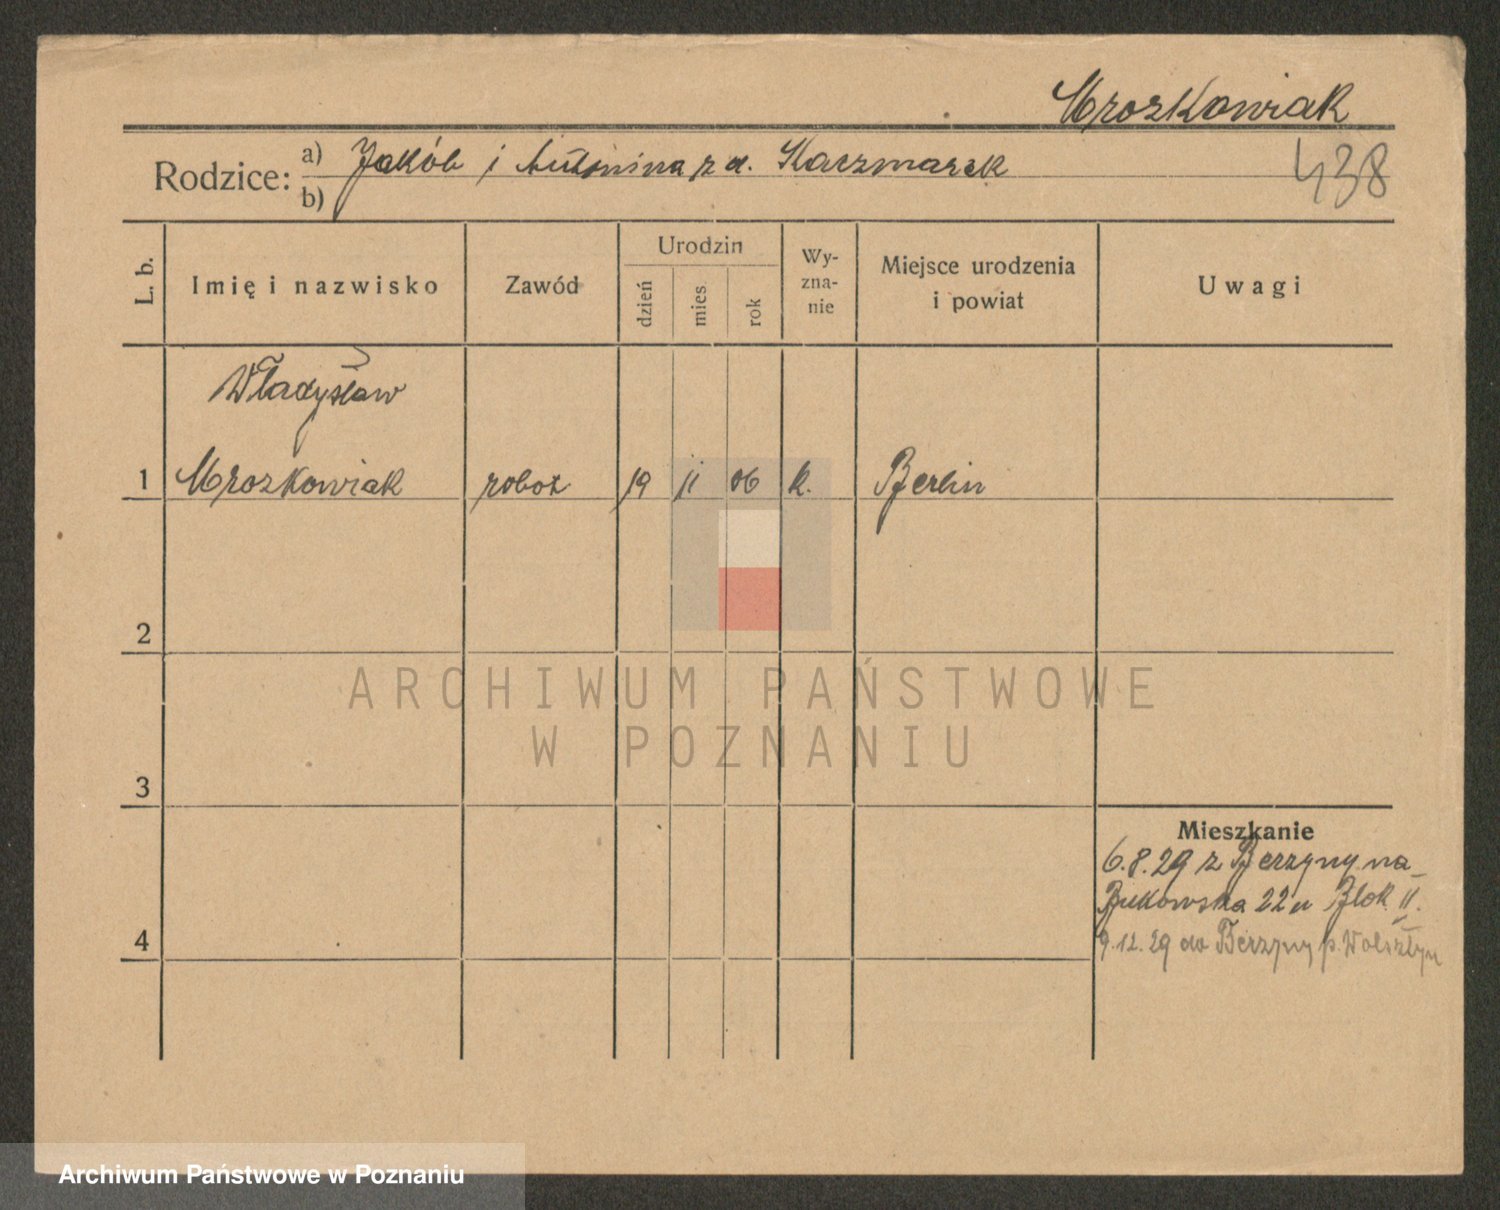 Mrozkowiak
438
Rodzice: a) Jakób i Antonina z d. Kaczmarek
b)
L. b. Imię i nazwisko Zawód Urodzin dzień mies rok Wy-zna-nie Miejsce urodzenia i powiat Uwagi
Władysław
1 Mrozkowiak robot 19 11 06 k. Berlin
2
ARCHIWUM PAŃSTWOWE
W POZNANIU
3
Mieszkanie
6.8.29 z Berzyny na
Bukowska 22 u Blok II.
4
9.12.29 do Berzyny p. Wolsztyn
Archiwum Państwowe w Poznaniu